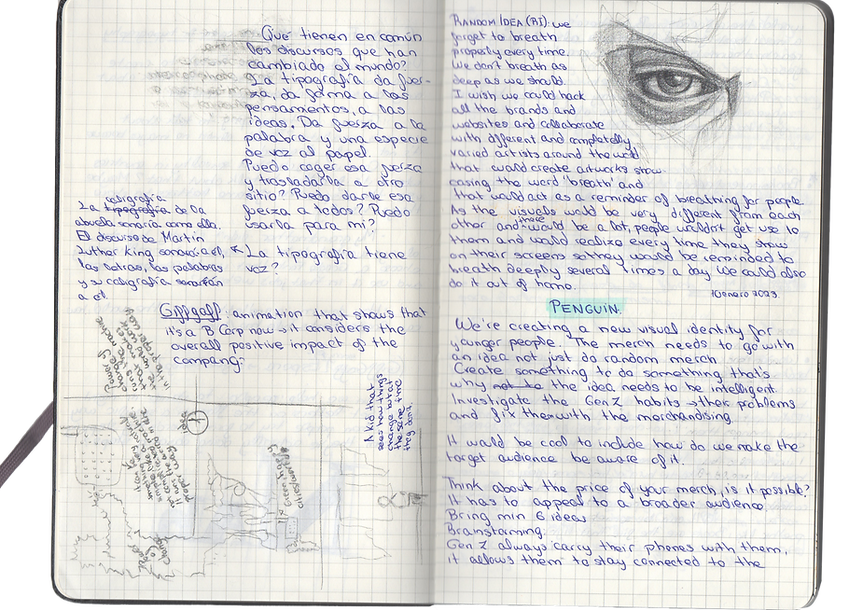 Qué tienen en común
los discursos que han
cambiado el mundo?
La tipografía da fuer-
za, da forma a los
pensamientos, a las
ideas. Da fuerza a la
palabra y una especie
de voz al papel.
Puedo coger esa fuerza
y trasladarla a otro
sitio? Puedo darle esa
fuerza a todos? Puedo
usarla para mi?
La tipografía tiene
voz?
caligrafía
La tipografía de la
abuela sonaría como ella.
El discurso de Martin
Luther King sonaría a él,
las letras, las palabras
y su caligrafía sonarían
a él.
Giffgaff: animation that shows that
it's a B Corp now → it considers the
overall positive impact of the
company?
A kid that
sees how things
change what
the same time
they dont
RANDOM IDEA (RI): we
forget to breath
properly every time.
We don't breath as
deep as we should.
I wish we could hack
all the brands and
websites and collaborate
with different and completely
varied artists around the world
that would create artworks show
casing the word 'breath' and
that would act as a reminder of breathing for people
As the visuals would be very different from each
other and there would be a lot, people wouldn't get use to
them and would realize every time they show
on their screens so they would be reminded to
breath deeply several times a day. We could also
do it out of home.
Enero 2023.
PENGUIN.
We're creating a new visual identity for
younger people. The merch needs to go with
an idea not just do random merch
Create something to do something that's
why the idea needs to be intelligent.
Investigate the Gen Z habits → their problems
and fix them with the merchandising.
It would be cool to include how do we make the
target audience be aware of it.
Think about the price of your merch, is it possible?
It has to appeal to a broader audience.
Bring min 6 ideas
Brainstorming.
Gen Z always carry their phones with them,
it allows them to stay connected to the